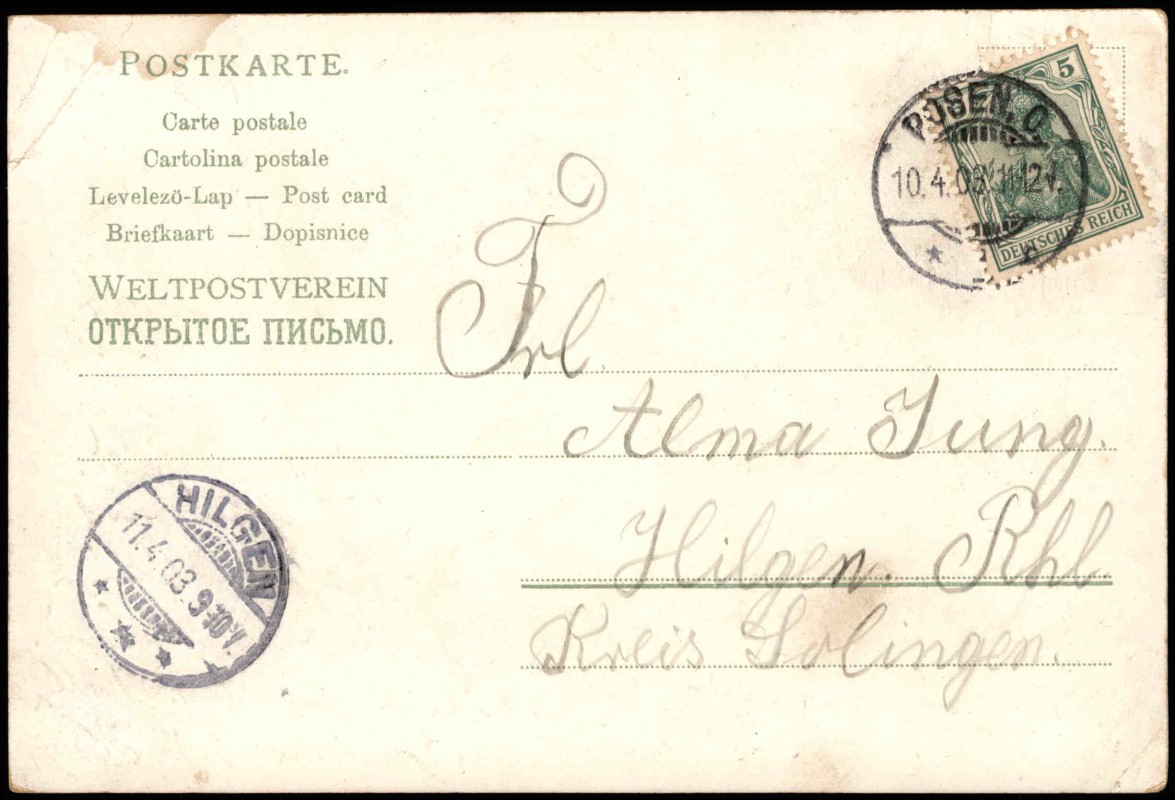 POSTKARTE.
Carte postale
Cartolina postale
Levelező-Lap — Post card
Briefkaart — Dopisnice
WELTPOSTVEREIN
ОТКРЫТОЕ ПИСЬМО.
5
DEUTSCHES REICH
POSEN. O.
10.4.03.11-12V.
Frl.
Alma Jung.
Hilgen. Rhl.
Kreis Solingen.
HILGEN
11.4.03.9-10V.